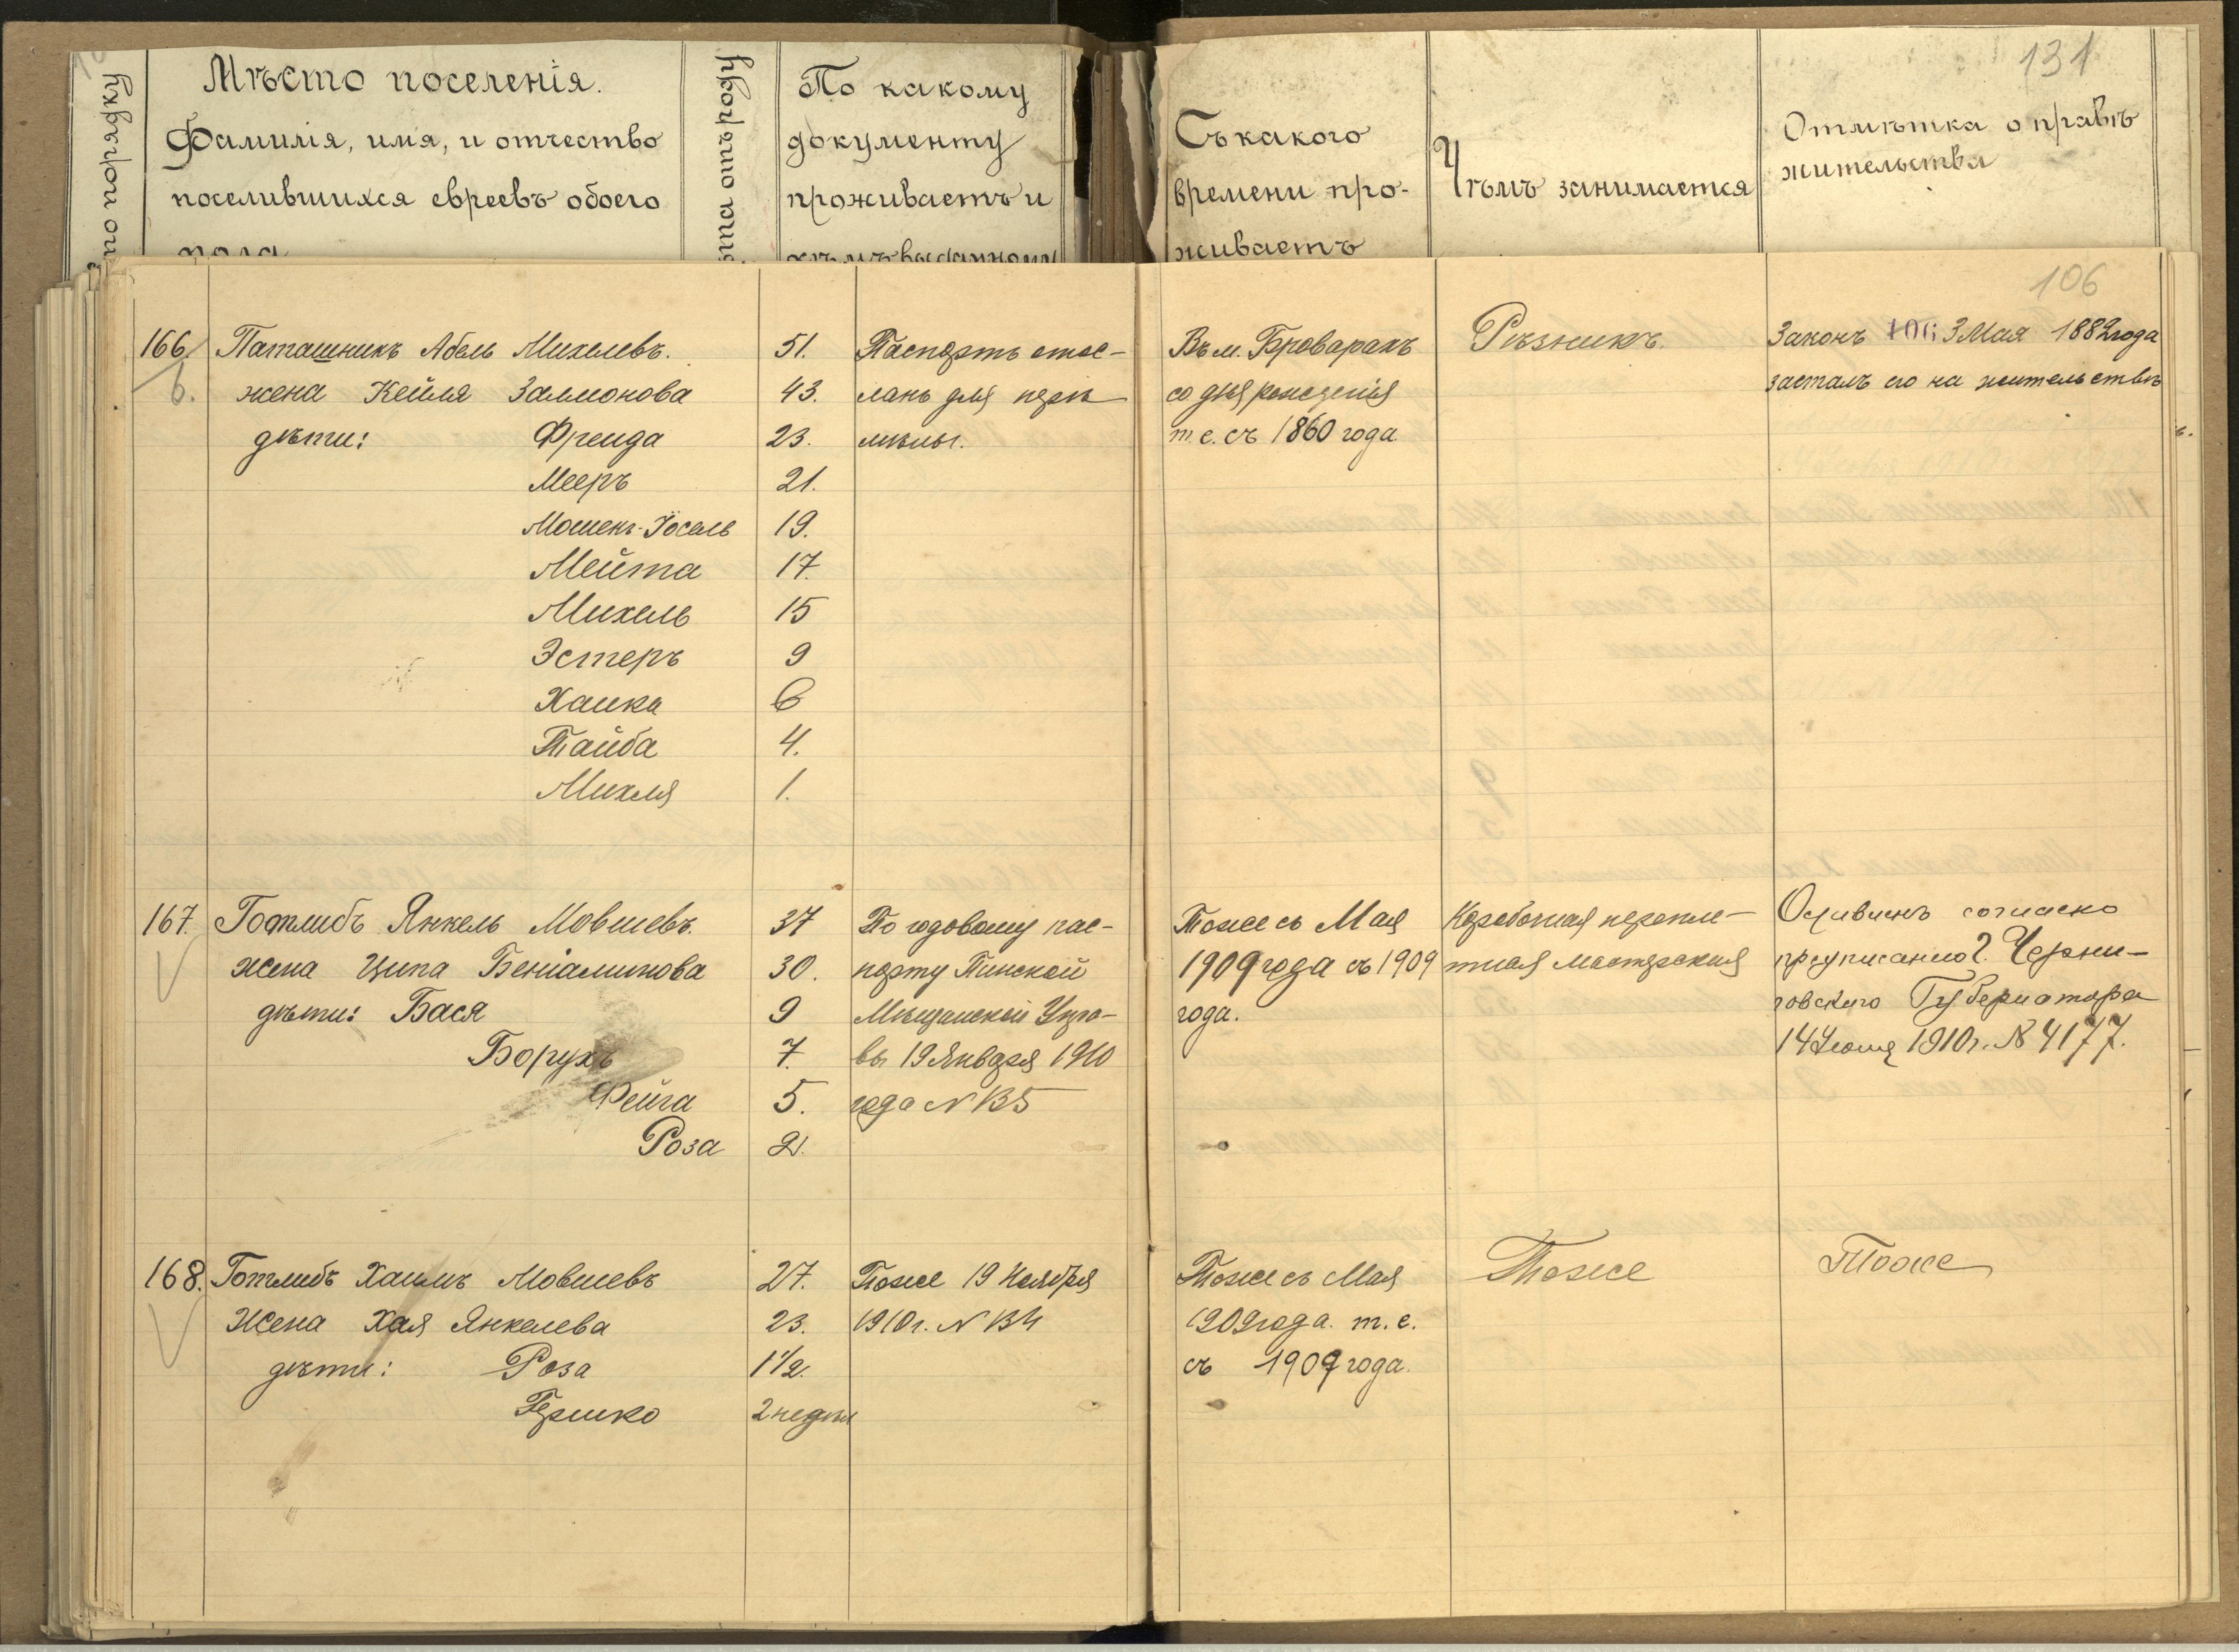 131
по порядку
Мѣсто поселенія.
Фамилія, имя, и отчество
поселившихся евреевъ обоего
пола
отъ роду
По какому
документу
проживаетъ и
кѣмъ выданному
Съ какого
времени про-
живаетъ
Чѣмъ занимается
Отмѣтка о правѣ
жительства
106
166. Паташникъ Абель Михелевъ. 51. Паспортъ отос- Въ м. Броварахъ Рѣзникъ. Законъ 3 Мая 1882 года
6. жена Кейля Залмонова 43. ланъ для пере со дня рожденія засталъ его на жительствѣ
дѣти: Фреида 23. мѣны. т.е. съ 1860 года
Мееръ 21.
Мошекъ-Іосель 19.
Мейта 17.
Михель 15
Эстеръ 9
Хаика 6
Тайба 4.
Михля 1.
167. Готлибъ Янкель Мовшевъ. 37 По годовому пас- Тоже съ Мая Коробочная перепле-
жена Ципа Беніаминова 30. порту Пинской 1909 года съ 1909 тная мастерская предписанію Г. Черни-
дѣти: Бася 9 Мѣщанской Упра- года. говскаго Губернатора
Борухъ 7. вы 19 Января 1910 14 Іюля 1910 г. № 4177.
Фейга 5. года № 135
Роза 2.
168. Готлибъ Хаимъ Мовшевъ 27. Тоже 19 Ноября Тоже съ Мая Тоже Тоже
Жена Хая Янкелева 23. 1910 г. № 134 1909 года. т.е.
дѣти: Роза 1 1/2. съ 1909 года.
Гершко 2 недѣли